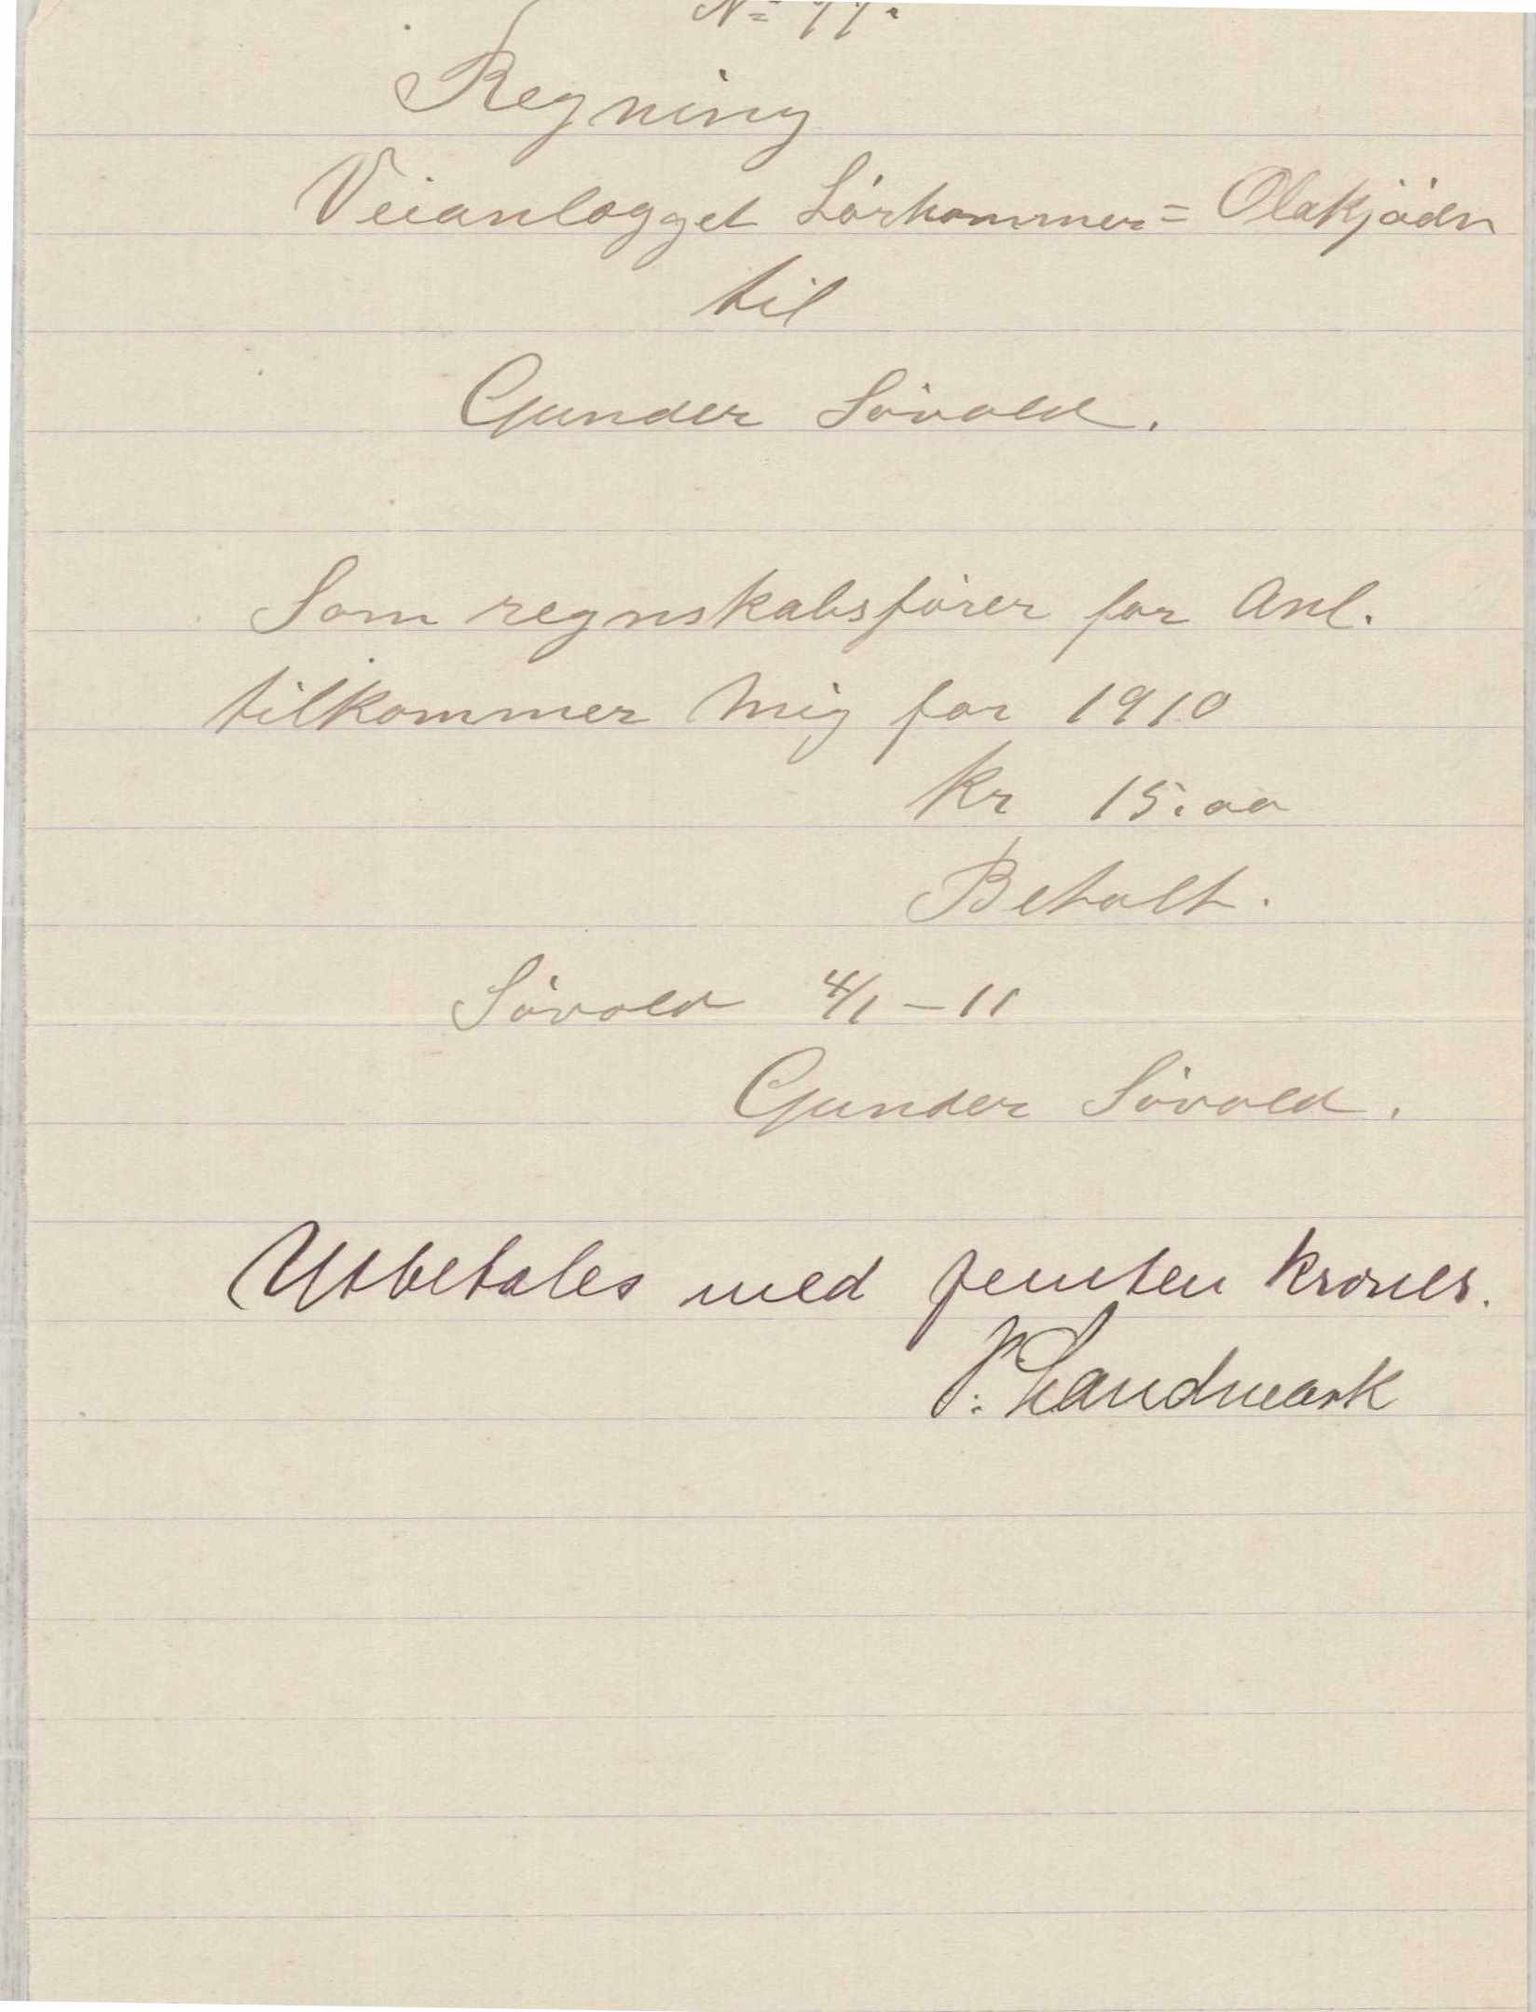 Regning
Veianlægget Lörkommer= Olakjödn
til
Gunder Sövold.
Som regnskabsförer for Anl.
tilkommer Mig for 1910
kr 15.00
Betalt.
Sövold 4/1-11
Gunder Sövold.
Utbetales med femten kroner.
P. Landmark